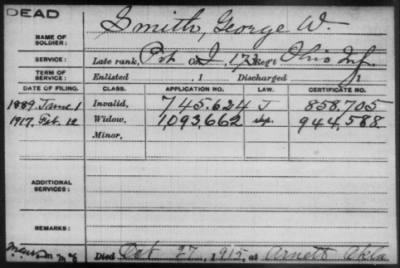 DEAD
NAME OF SOLDIER: Smith, George W.
SERVICE: Late rank, Pvt Co. I, 173 Reg't Ohio Inf.
TERM OF SERVICE: Enlisted , 1 Discharged , 1
DATE OF FILING. CLASS. APPLICATION NO. LAW. CERTIFICATE NO.
1889. June 1 Invalid, 745.624 J 858.705
1917. Feb. 12 Widow, 1,093,662 944,588
Minor,
ADDITIONAL SERVICES:
REMARKS:
Died Oct 27, 1915, at Arnett Okla